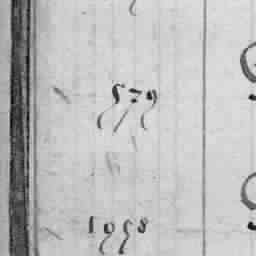 579
1058